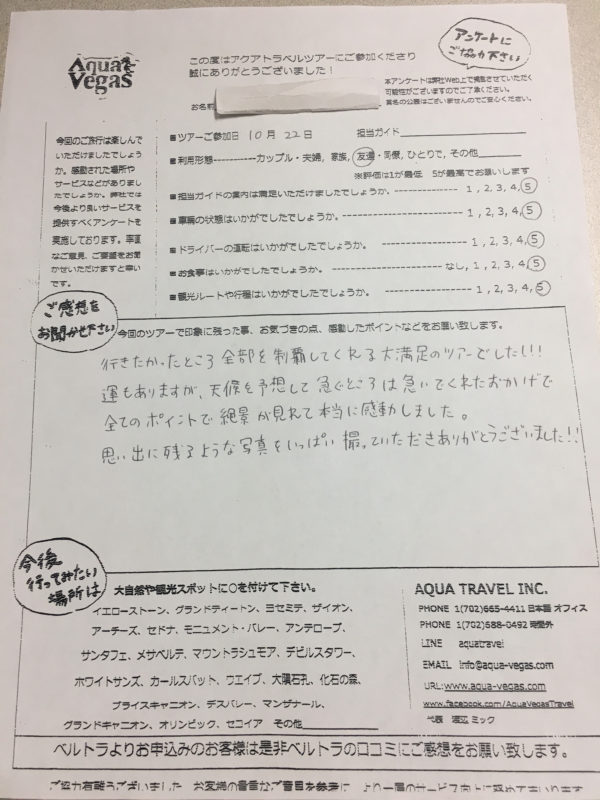 Aqua Vegas
この度はアクアトラベルツアーにご参加くださり
誠にありがとうございました！
アンケートに
ご協力下さい
本アンケートは弊社Web上で掲載させていただく
可能性がございますのでご了承ください。
実名の公表はございませんのでご安心ください。
お名前
今回のご旅行は楽しんで
いただけましたでしょう
か。感動された場所や
サービスなどがありまし
たでしょうか。弊社では
今後より良いサービスを
提供すべくアンケートを
実施しております。率直
なご意見、ご要望をお聞
かせいただけますと幸い
です。
■ツアーご参加日 10月 22日 担当ガイド
■利用形態-----------カップル・夫婦, 家族, 友達・同僚, ひとりで, その他
※評価は1が最低 5が最高でお願いします
■担当ガイドの案内は満足いただけましたでしょうか。 ------------- 1 , 2, 3, 4, 5
■車輛の状態はいかがでしたでしょうか。 ---------------------- 1, 2, 3, 4, 5
■ドライバーの運転はいかがでしたでしょうか。 ---------------- 1 , 2, 3, 4, 5
■お食事はいかがでしたでしょうか。 ---------------- なし, 1 , 2, 3, 4, 5
■観光ルートや行程はいかがでしたでしょうか。 ---------------- 1, 2, 3, 4, 5
ご感想を
お聞かせ下さい
今回のツアーで印象に残った事、お気づきの点、感動したポイントなどをお願い致します。
行きたかったところ全部を制覇してくれる大満足のツアーでした!!!
運もありますが、天候を予想して急ぐところは急いでくれたおかげで
全てのポイントで絶景が見れて本当に感動しました。
思い出に残るような写真をいっぱい撮っていただきありがとうございました!!
今後
行ってみたい
場所は
大自然や観光スポットに○を付けて下さい。
イエローストーン、グランドティートン、ヨセミテ、ザイオン、
アーチーズ、セドナ、モニュメント・バレー、アンテロープ、
サンタフェ、メサベルデ、マウントラシュモア、デビルスタワー、
ホワイトサンズ、カールスバット、ウエイブ、大隕石孔、化石の森、
ブライスキャニオン、デスバレー、マンザナール、
グランドキャニオン、オリンピック、セコイア その他
AQUA TRAVEL INC.
PHONE 1(702)665-4411 日本語 オフィス
PHONE 1(702)588-0492 時間外
LINE aquatravel
EMAIL info@aqua-vegas.com
URL:www.aqua-vegas.com
www.facebook.com/AquaVegasTravel
代表 渡辺 ミック
ベルトラよりお申込みのお客様は是非ベルトラの口コミにご感想をお願い致します。
ご協力有難うございました お客様の貴重なご意見を参考に、より一層のサービス向上に努めてまいります